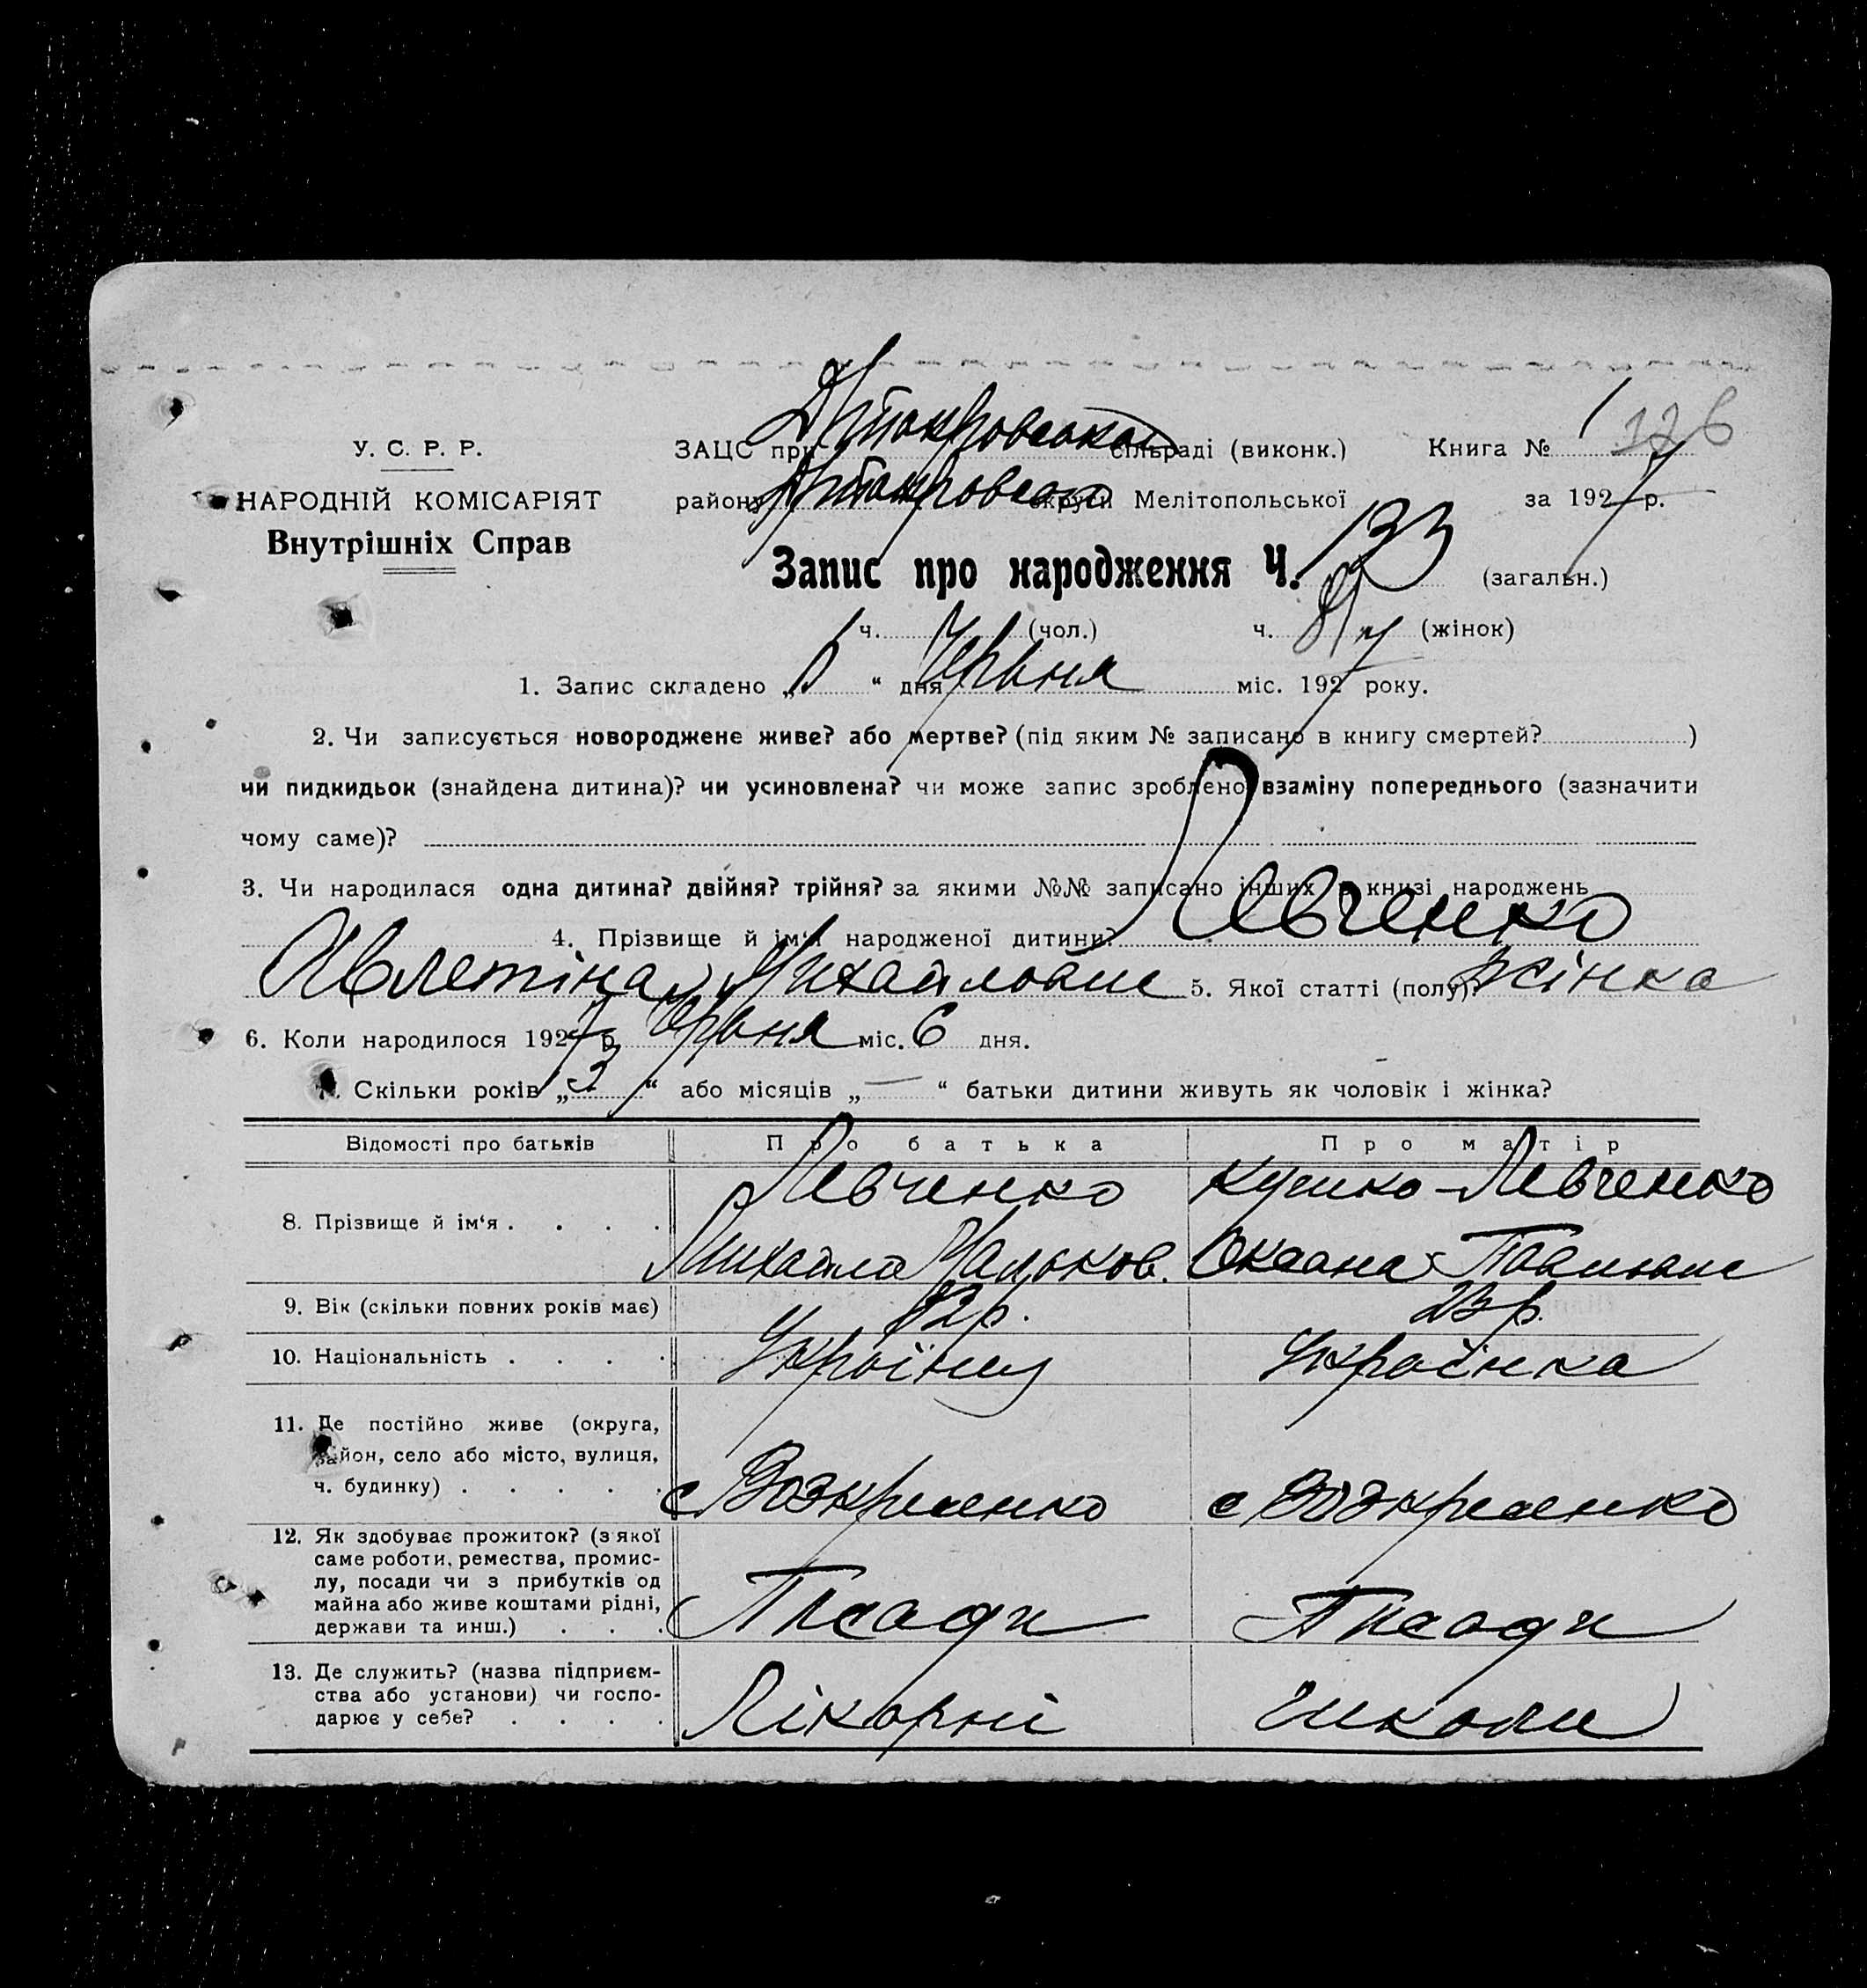 У. С. Р. Р.
НАРОДНІЙ КОМІСАРІЯТ
Внутрішніх Справ
ЗАЦС при сільраді (виконк.) Книга № 1 176
району округи Мелітопольської за 1927 р.
Запис про народження Ч. 133 (загальн.)
ч. (чол.) ч. (жінок)
1. Запис складено „ “ дня Червня міс. 1927 року.
2. Чи записується новороджене живе? або мертве? (під яким № записано в книгу смертей? )
чи пидкидьок (знайдена дитина)? чи усиновлена? чи може запис зроблено взаміну попереднього (зазначити
чому саме)?
3. Чи народилася одна дитина? двійня? трійня? за якими №№ записано інших в книзі народжень
4. Прізвище й ім‘я народженої дитини? Левченко
Михайловне 5. Якої статті (полу)? жінка
6. Коли народилося 1927 р. Червня міс. 6 дня.
7. Скільки років „3“ або місяців „—“ батьки дитини живуть як чоловік і жінка?
Відомості про батьків Про батька Про матір
8. Прізвище й ім‘я . . . . Левченко -Левченко
Михайло Оксана
9. Вік (скільки повних років має) 32р. 23р.
10. Національність . . . . Українец Українка
11. Де постійно живе (округа,
район, село або місто, вулиця,
ч. будинку) . . . . . с Возкресенко с Возкресенко
12. Як здобуває прожиток? (з якої
саме роботи, ремества, промис-
лу, посади чи з прибутків од
майна або живе коштами рідні,
держави та инш.) . . . Посади Посади
13. Де служить? (назва підприєм-
ства або установи) чи госпо-
дарює у себе? . . . . Лікарні школи